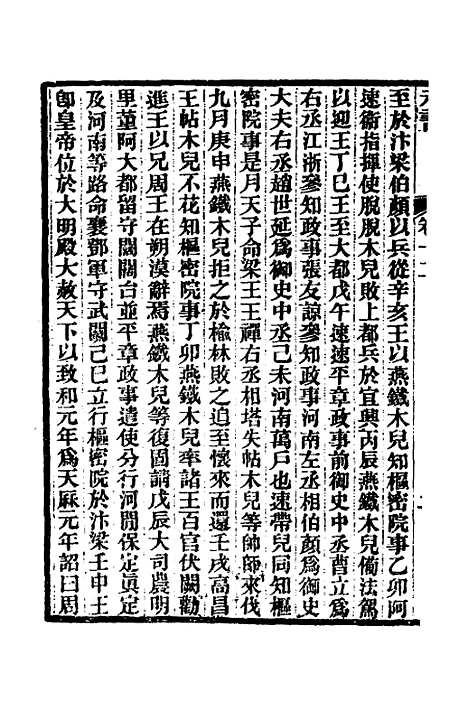 至於汴梁伯顏以兵從辛亥王以燕鐵木兒知樞密院事乙卯阿
速衞指揮使脫脫木兒敗上都兵於宜興丙辰燕鐵木兒備法駕
以迎王丁巳王至大都戊午速速平章政事前御史中丞曹立爲
右丞江浙參知政事張友諒參知政事河南左丞相伯顏爲御史
大夫右丞趙世延爲御史中丞己未河南萬戶也速帶兒同知樞
密院事是月天子命梁王王禪右丞相塔失帖木兒等帥師來伐
九月庚申燕鐵木兒拒之於楡林敗之追至懷來而還壬戌高昌
王帖木兒不花知樞密院事丁卯燕鐵木兒率諸王百官伏闕勸
進王以兄周王在朔漠辭焉燕鐵木兒等復固請戊辰大司農明
里董阿大都留守闊闊台並平章政事遣使分行河閒保定眞定
及河南等路命襄鄧軍守武關己巳立行樞密院於汴梁壬申王
卽皇帝位於大明殿大赦天下以致和元年爲天厤元年詔曰周